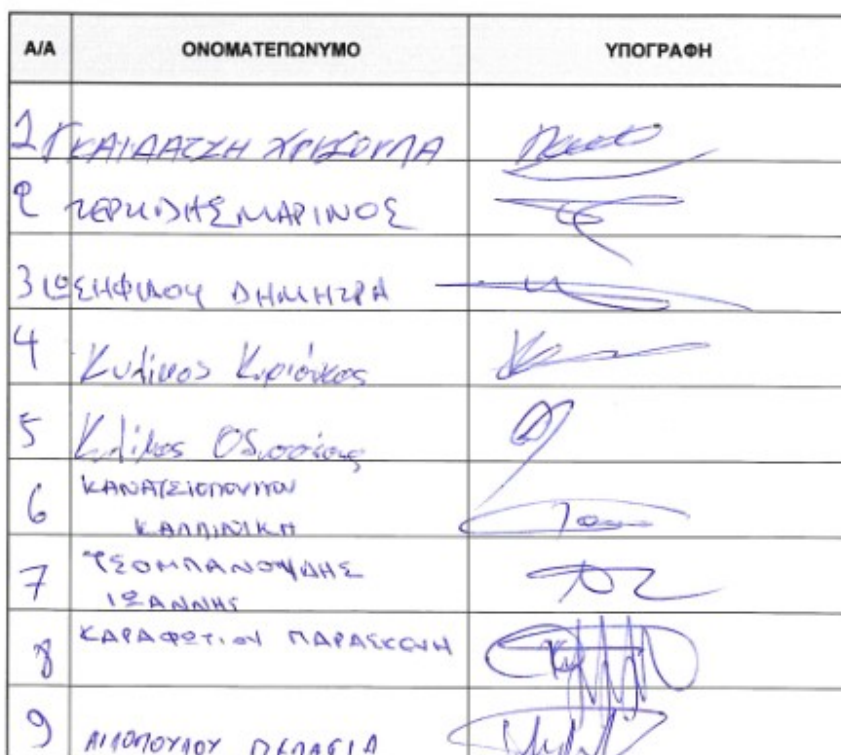 Α/Α ΟΝΟΜΑΤΕΠΩΝΥΜΟ ΥΠΟΓΡΑΦΗ
1 ΓΚΑΙΔΑΤΖΗ ΧΡΥΣΟΥΛΑ
2 ΤΕΡΖΙΔΗΣ ΜΑΡΙΝΟΣ
3 ΙΩΣΗΦΙΔΟΥ ΔΗΜΗΤΡΑ
4 Κυλίκος Κυριάκος
5 Κυλίκος Οδυσσέας
6 ΚΑΝΑΤΣΙΟΠΟΥΛΟΥ
ΚΑΛΛΙΝΙΚΗ
7 ΤΣΟΜΠΑΝΟΥΔΗΣ
ΙΩΑΝΝΗΣ
8 ΚΑΡΑΦΩΤΙΟΥ ΠΑΡΑΣΚΕΥΗ
9 ΠΕΛΑΓΙΑ